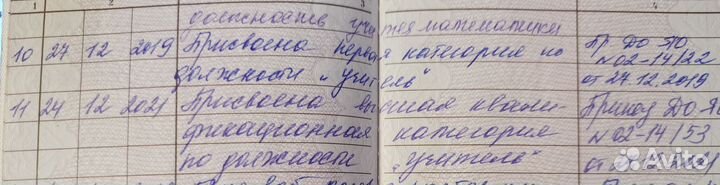 1 3 4
должность учителя математики
10 27 12 2019 Присвоена первая категория по Пр. ДО-ЯО
должности „учитель“ №02-14/22
от 27.12.2019
11 24 12 2021 Присвоена высшая квали- Приказ ДО-Я
фикационная категория №02-14/53
по должности „учитель“ от
Avito